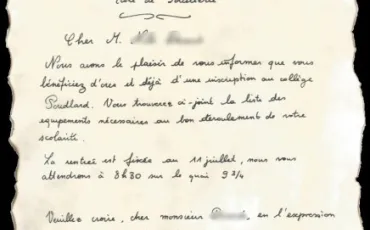 École de Sorcellerie
Cher M.
Nous avons le plaisir de vous informer que vous
bénéficiez d'ores et déjà d'une inscription au collège
Poudlard. Vous trouverez ci-joint la liste des
équipements nécessaires au bon déroulement de votre
scolarité.
La rentrée est fixée au 11 juillet, nous vous
attendrons à 8h30 sur le quai 9 3/4
Veuillez croire, cher monsieur, en l'expression